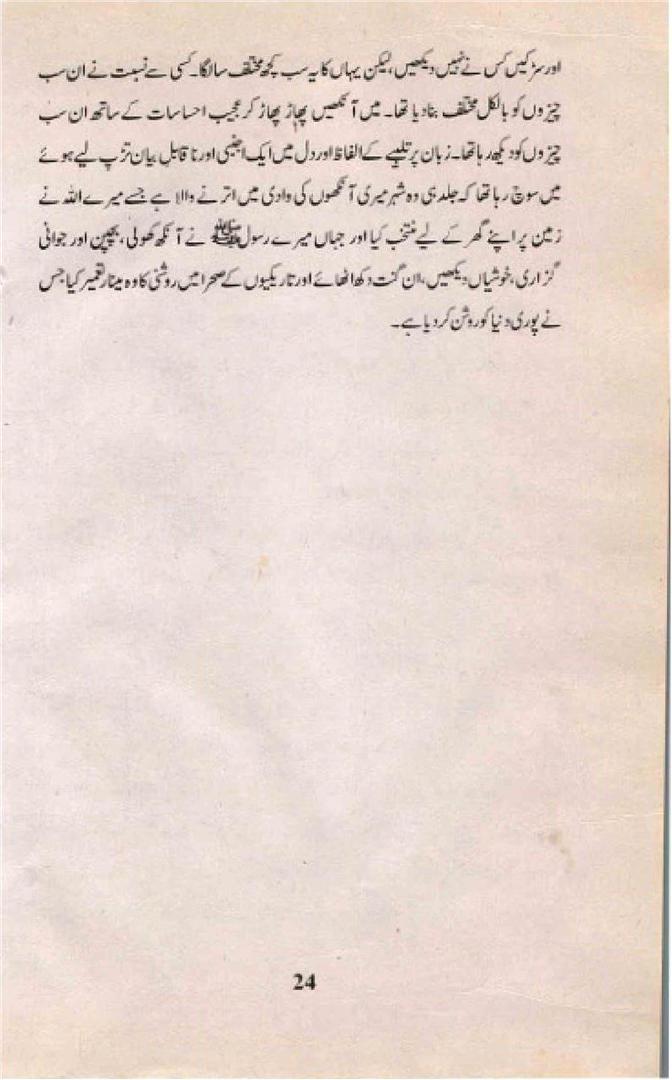 اور سڑکیں کس نے نہیں دیکھیں، لیکن یہاں کا یہ سب کچھ مختلف سا لگا۔ کسی سے نسبت نے ان سب
چیزوں کو بالکل مختلف بنا دیا تھا۔ میں آنکھیں پھاڑ پھاڑ کر عجیب احساسات کے ساتھ ان سب
چیزوں کو دیکھ رہا تھا۔ زبان پر تلبیے کے الفاظ اور دل میں ایک اجنبی اور ناقابلِ بیان تڑپ لیے ہوئے
میں سوچ رہا تھا کہ جلد ہی وہ شہر میری آنکھوں کی وادی میں اترنے والا ہے جسے میرے اللہ نے
زمین پر اپنے گھر کے لیے منتخب کیا اور جہاں میرے رسول ﷺ نے آنکھ کھولی، بچپن اور جوانی
گزاری، خوشیاں دیکھیں، ان گنت دکھ اٹھائے اور تاریکیوں کے صحرا میں روشنی کا وہ مینار تعمیر کیا، جس
نے پوری دنیا کو روشن کر دیا ہے۔
24